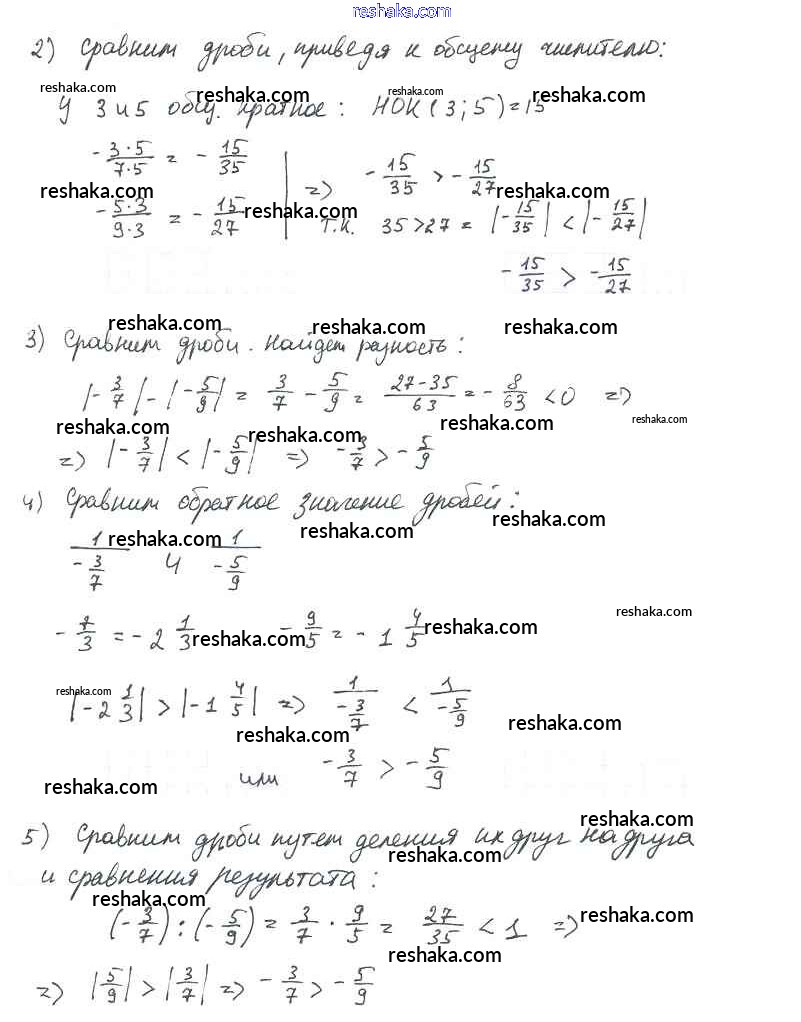 reshaka.com
2) Сравним дроби, приведя к общему числителю:
reshaka.com reshaka.com reshaka.com reshaka.com
У 3 и 5 общ. кратное: НОК(3;5)=15
-3·5/7·5 = -15/35 | => -15/35 > -15/27
reshaka.com reshaka.com
-5·3/9·3 = -15/27 | т.к. 35>27 = |-15/35| < |-15/27|
reshaka.com
-15/35 > -15/27
reshaka.com reshaka.com reshaka.com
3) Сравним дроби. Найдем разность:
|-3/7| - |-5/9| = 3/7 - 5/9 = 27-35/63 = -8/63 < 0 =>
reshaka.com reshaka.com reshaka.com reshaka.com
=> |-3/7| < |-5/9| => -3/7 > -5/9
4) Сравним обратное значение дробей:
reshaka.com reshaka.com reshaka.com
1/-3/7 и 1/-5/9
reshaka.com
-7/3 = -2 1/3 -9/5 = -1 4/5
reshaka.com reshaka.com
reshaka.com
|-2 1/3| > |-1 4/5| => 1/-3/7 < 1/-5/9
reshaka.com reshaka.com
или -3/7 > -5/9
reshaka.com
reshaka.com
5) Сравним дроби путем деления их друг на друга
reshaka.com
и сравнения результата:
reshaka.com reshaka.com
(-3/7) : (-5/9) = 3/7 · 9/5 = 27/35 < 1 =>
reshaka.com
=> |5/9| > |3/7| => -3/7 > -5/9